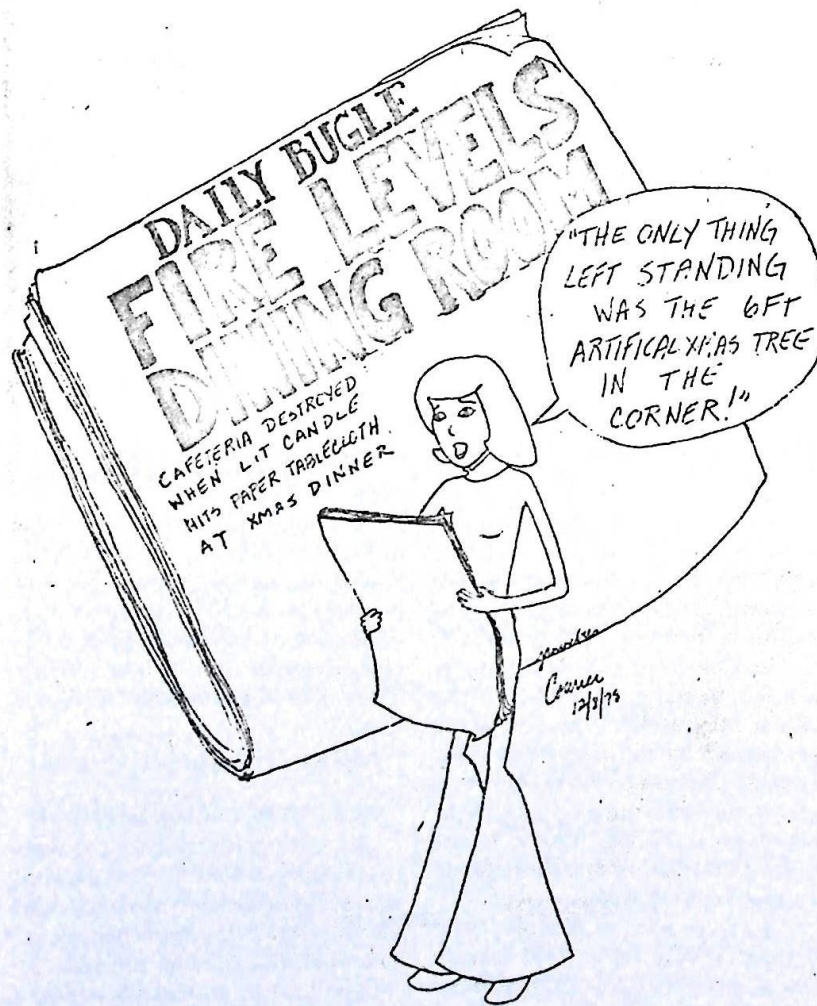 DAILY BUGLE
FIRE LEVELS
DINING ROOM
CAFETERIA DESTROYED
WHEN LIT CANDLE
HITS PAPER TABLECLOTH
AT XMAS DINNER
"THE ONLY THING
LEFT STANDING
WAS THE 6FT
ARTIFICAL XMAS TREE
IN THE
CORNER!"
12/8/75